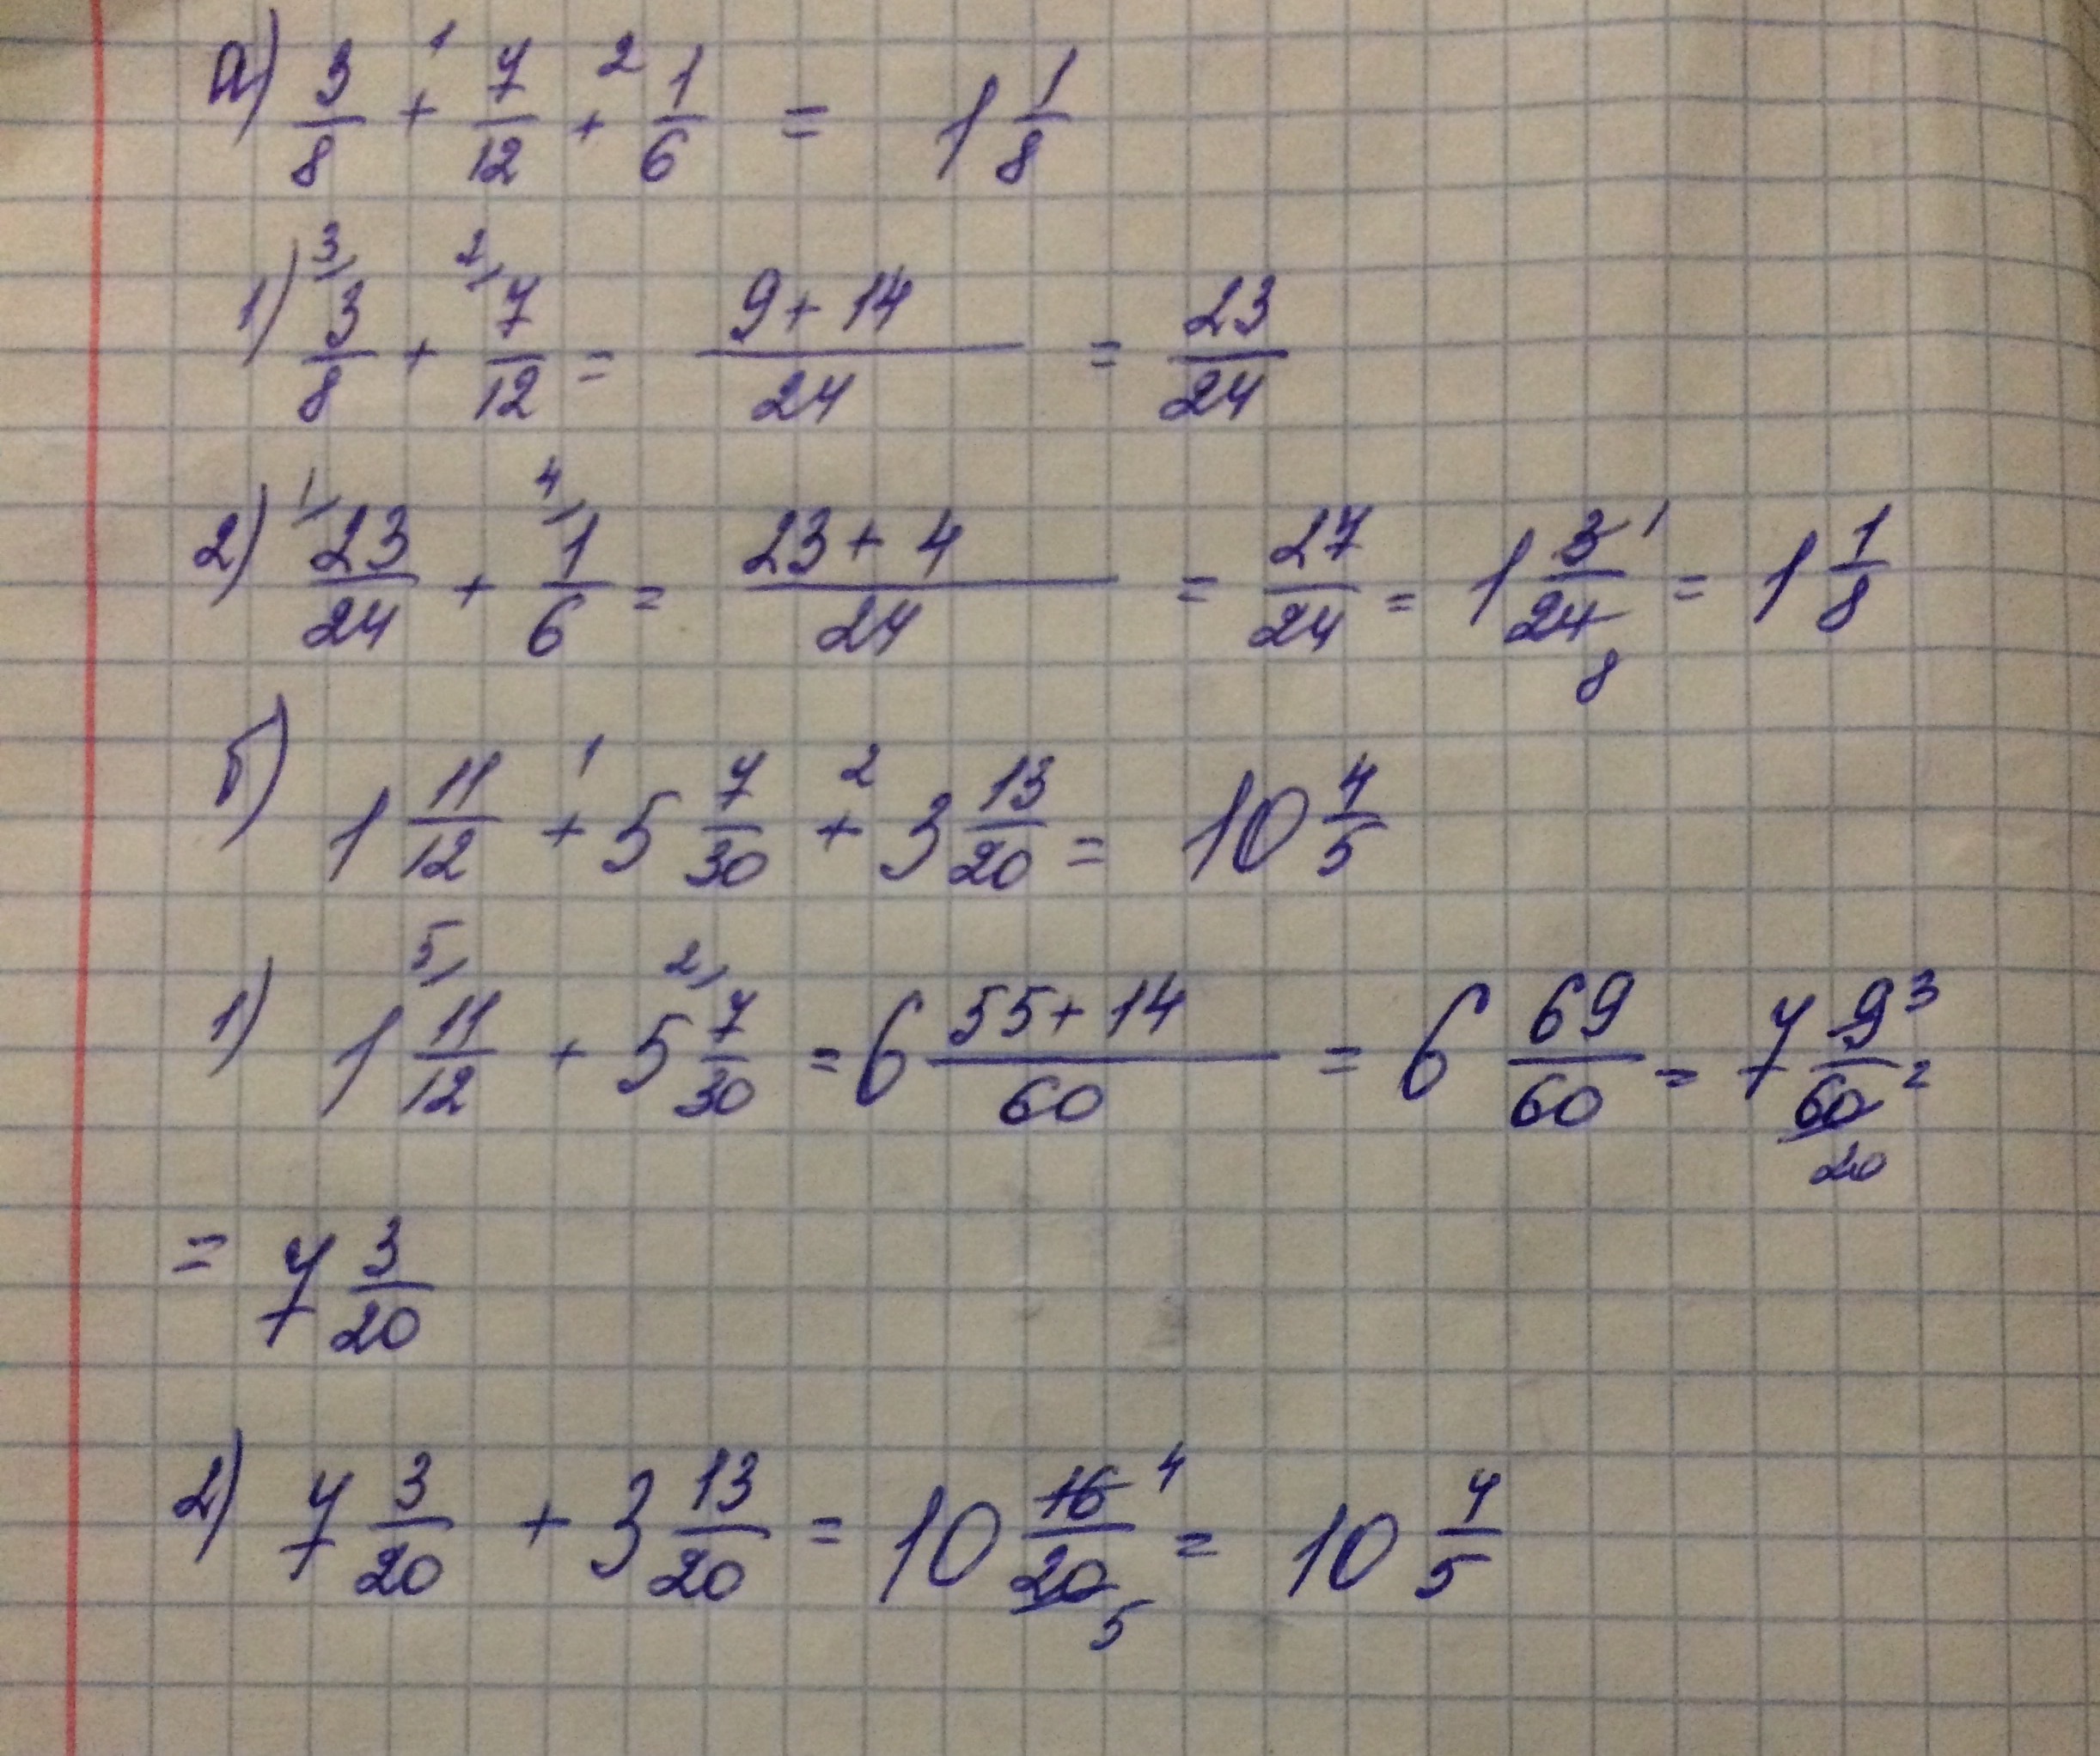 а) 3/8 +¹ 7/12 +² 1/6 = 1 1/8
1) ³⁄ 3/8 + ²⁄ 7/12 = (9 + 14)/24 = 23/24
2) ¹⁄ 23/24 + ⁴⁄ 1/6 = (23 + 4)/24 = 27/24 = 1 3/24 ¹ ₈ = 1 1/8
б) 1 11/12 +¹ 5 7/30 +² 3 13/20 = 10 4/5
1) 1 ⁵⁄ 11/12 + 5 ²⁄ 7/30 = 6 (55 + 14)/60 = 6 69/60 = 7 9/60 ³ ₂₀ =
= 7 3/20
2) 7 3/20 + 3 13/20 = 10 16/20 ⁴ ₅ = 10 4/5